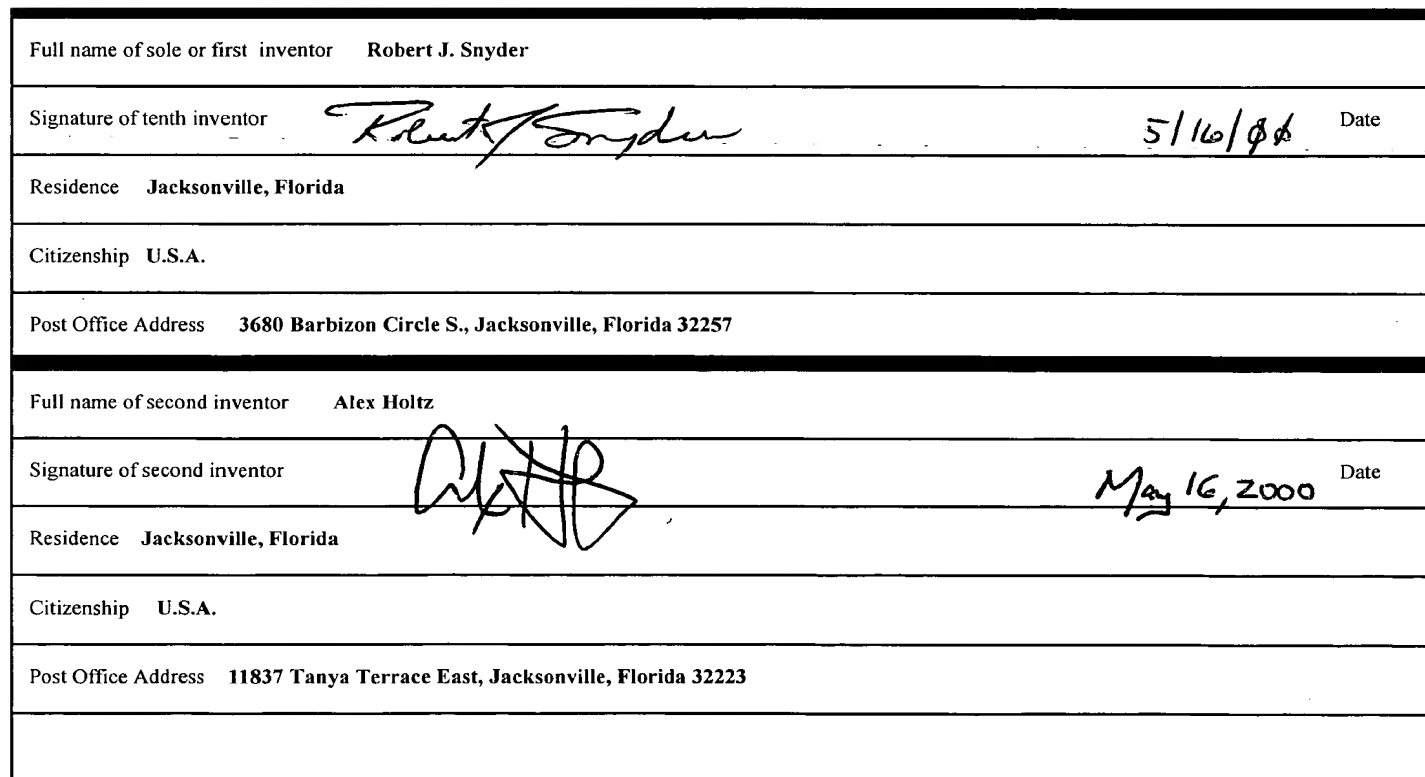 Full name of sole or first inventor Robert J. Snyder
Signature of tenth inventor Robert J Snyder 5/16/00 Date
Residence Jacksonville, Florida
Citizenship U.S.A.
Post Office Address 3680 Barbizon Circle S., Jacksonville, Florida 32257
Full name of second inventor Alex Holtz
Signature of second inventor May 16, 2000 Date
Residence Jacksonville, Florida
Citizenship U.S.A.
Post Office Address 11837 Tanya Terrace East, Jacksonville, Florida 32223